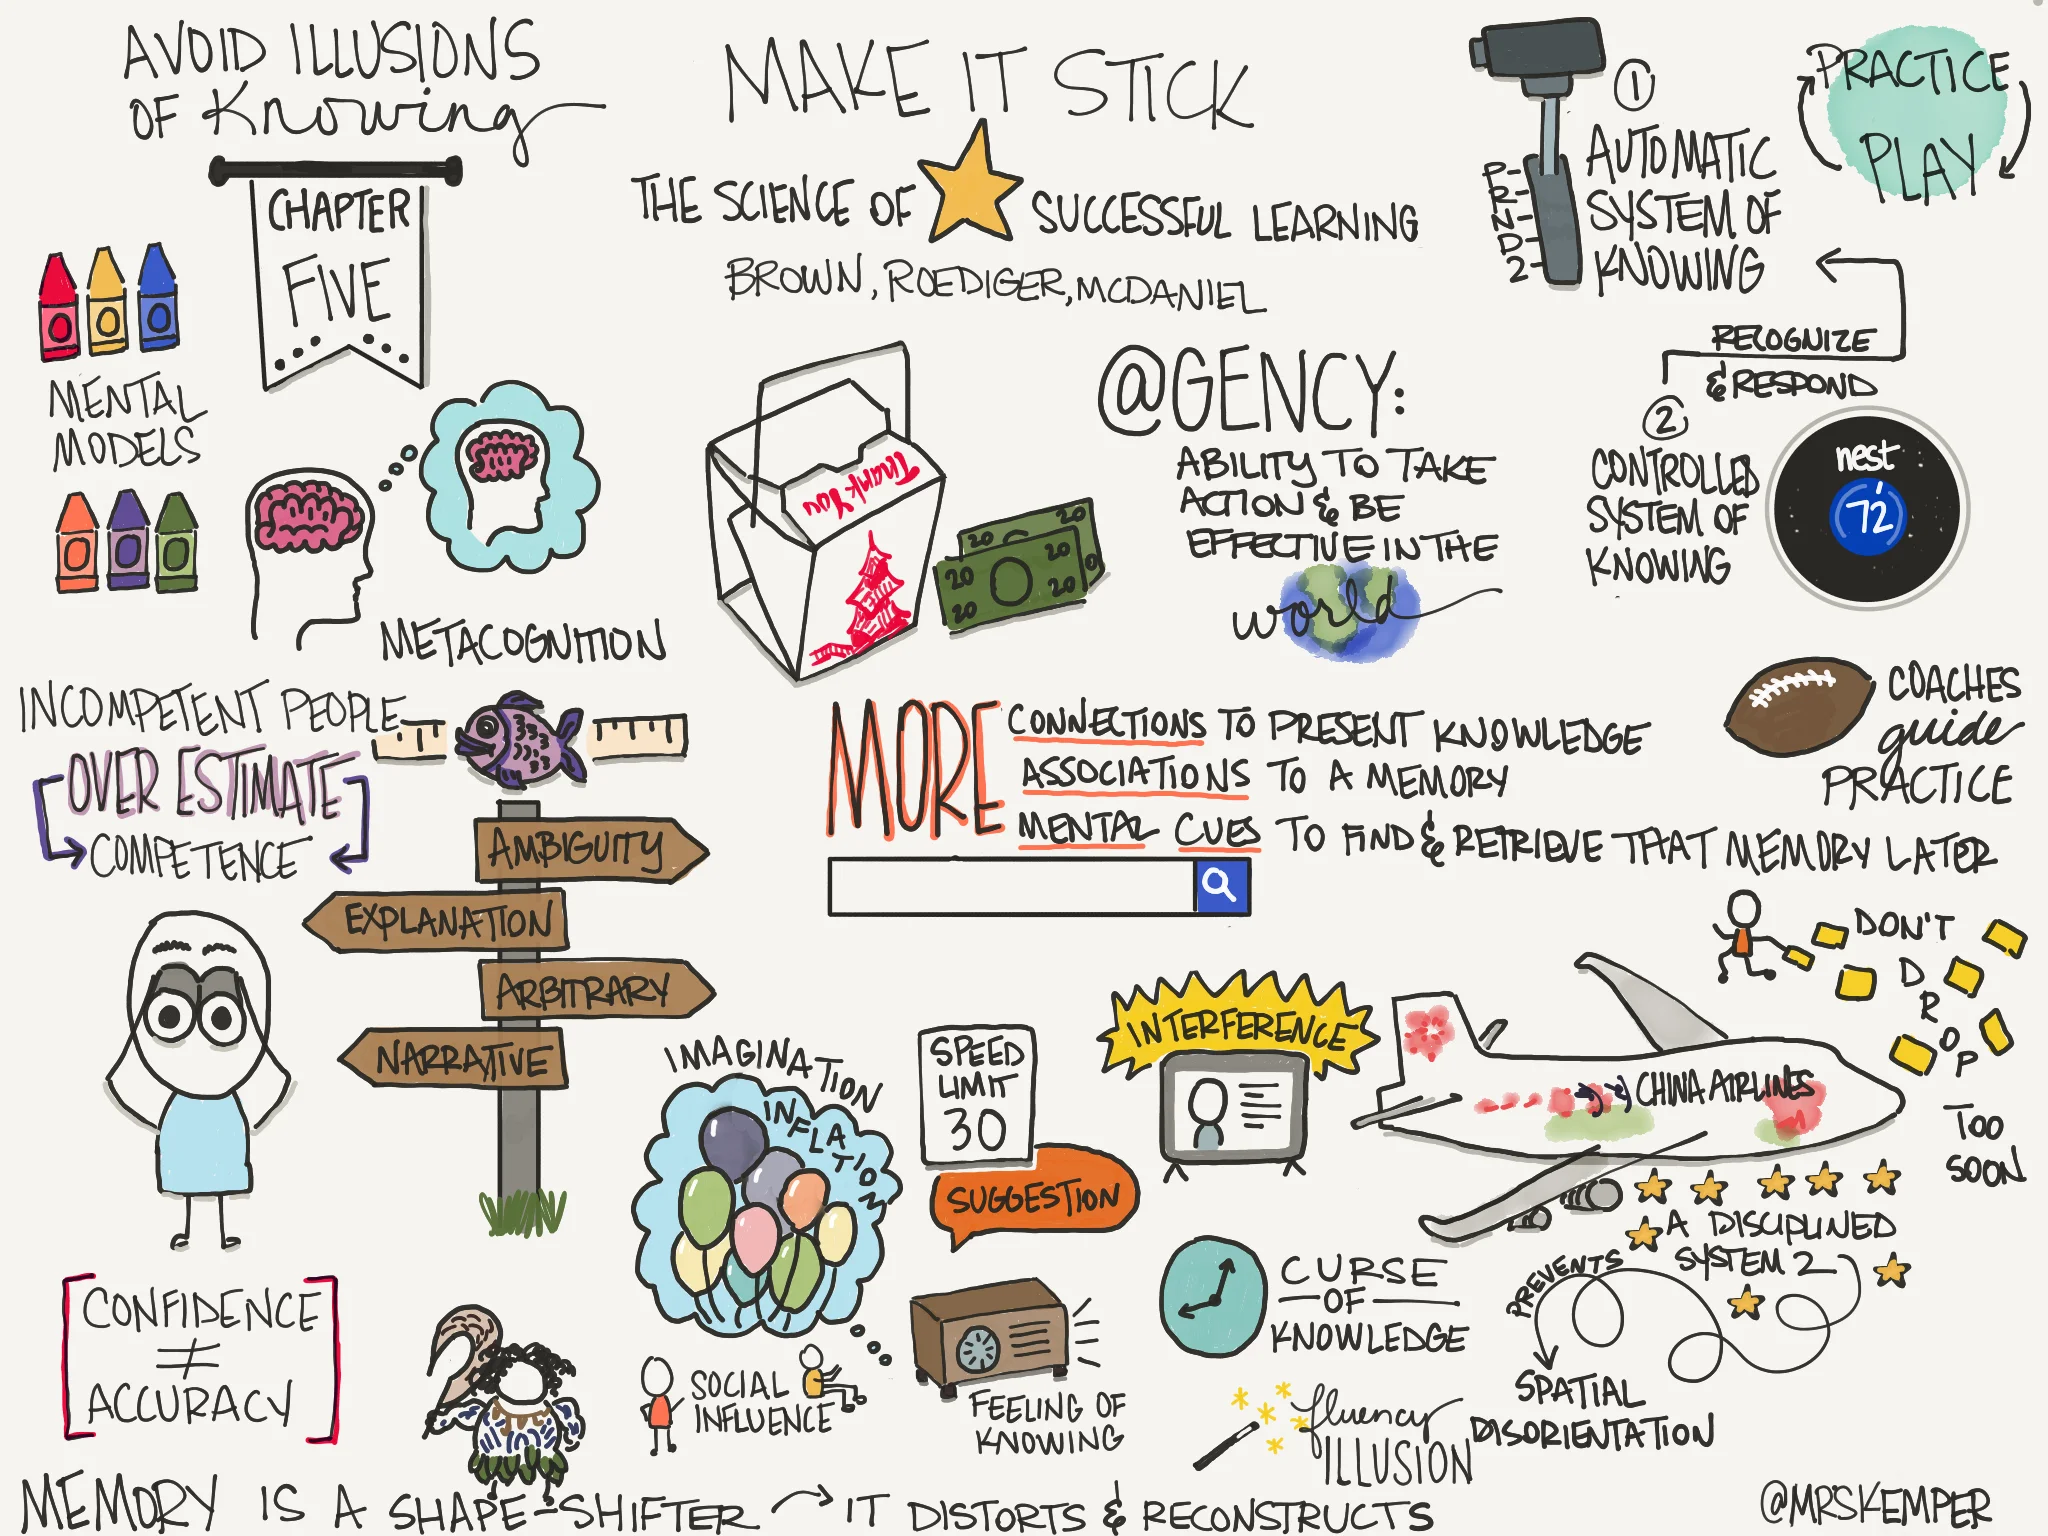 AVOID ILLUSIONS
OF Knowing
CHAPTER
FIVE
MAKE IT STICK
THE SCIENCE OF SUCCESSFUL LEARNING
BROWN, ROEDIGER, MCDANIEL
P-
R-
N-
D-
2-
1
AUTOMATIC
SYSTEM OF
KNOWING
PRACTICE
PLAY
RECOGNIZE
& RESPOND
2
CONTROLLED
SYSTEM OF
KNOWING
nest
72
MENTAL
MODELS
METACOGNITION
Thank You
20 20
20 20
20 20
@GENCY:
ABILITY TO TAKE
ACTION & BE
EFFECTIVE IN THE
world
COACHES
guide
PRACTICE
INCOMPETENT PEOPLE
OVER ESTIMATE
COMPETENCE
AMBIGUITY
EXPLANATION
ARBITRARY
NARRATIVE
MORE
CONNECTIONS TO PRESENT KNOWLEDGE
ASSOCIATIONS TO A MEMORY
MENTAL CUES TO FIND & RETRIEVE THAT MEMORY LATER
DON'T
DROP
TOO
SOON
IMAGINATION
INFLATION
SPEED
LIMIT
30
SUGGESTION
INTERFERENCE
CHINA AIRLINES
A DISCIPLINED
SYSTEM 2
PREVENTS
SPATIAL
DISORIENTATION
CONFIDENCE
≠
ACCURACY
SOCIAL
INFLUENCE
FEELING OF
KNOWING
CURSE
OF
KNOWLEDGE
fluency
ILLUSION
MEMORY IS A SHAPE-SHIFTER → IT DISTORTS & RECONSTRUCTS
@MRSKEMPER